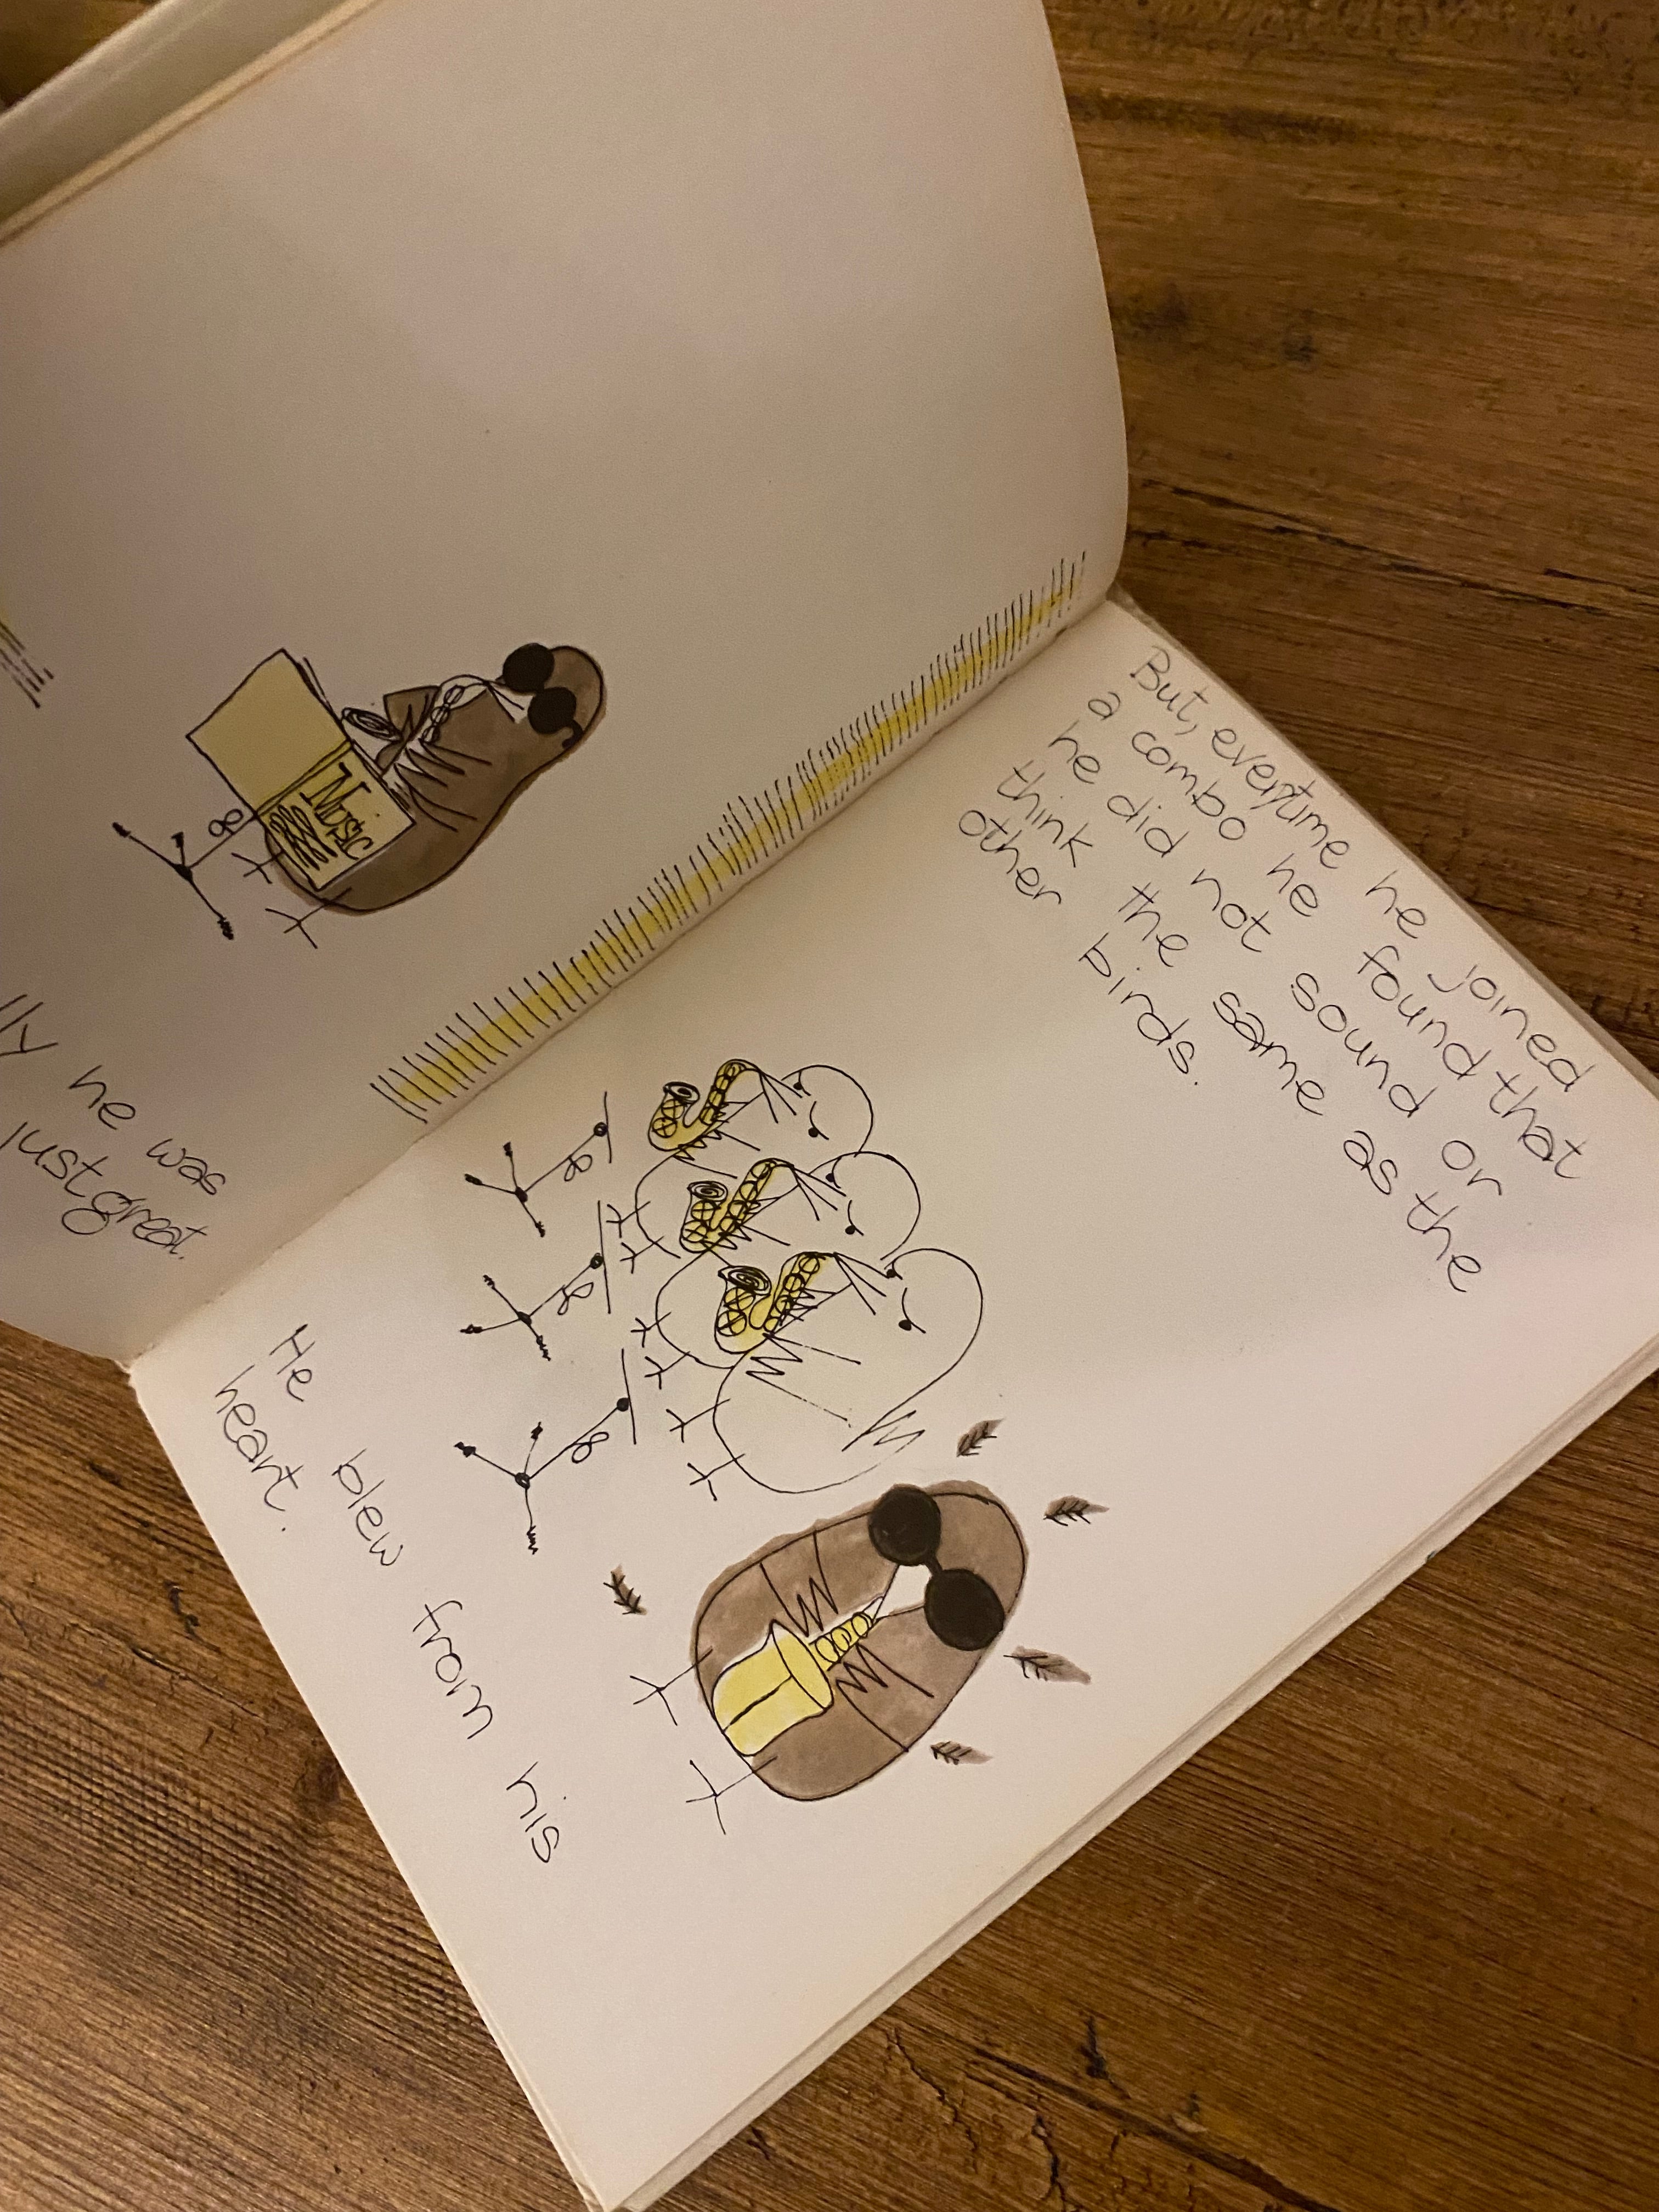 Music
he was
just great.
But, everytime he joined
a combo he found that
he did not sound or
think the same as the
other birds.
He blew from his
heart.